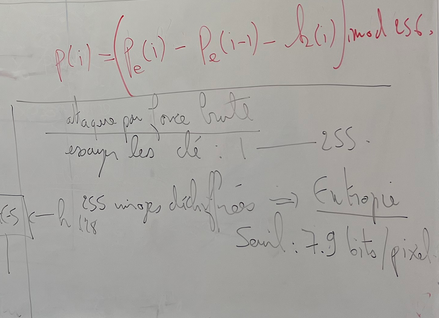 p(i) = (Pe(i) - Pe(i-1) - k(i)) mod 256.
attaque par force brute
essayer les clé : 1 — 255.
255 images déchiffrées ⇒ Entropie
128
Seuil : 7.9 bits/pixel.